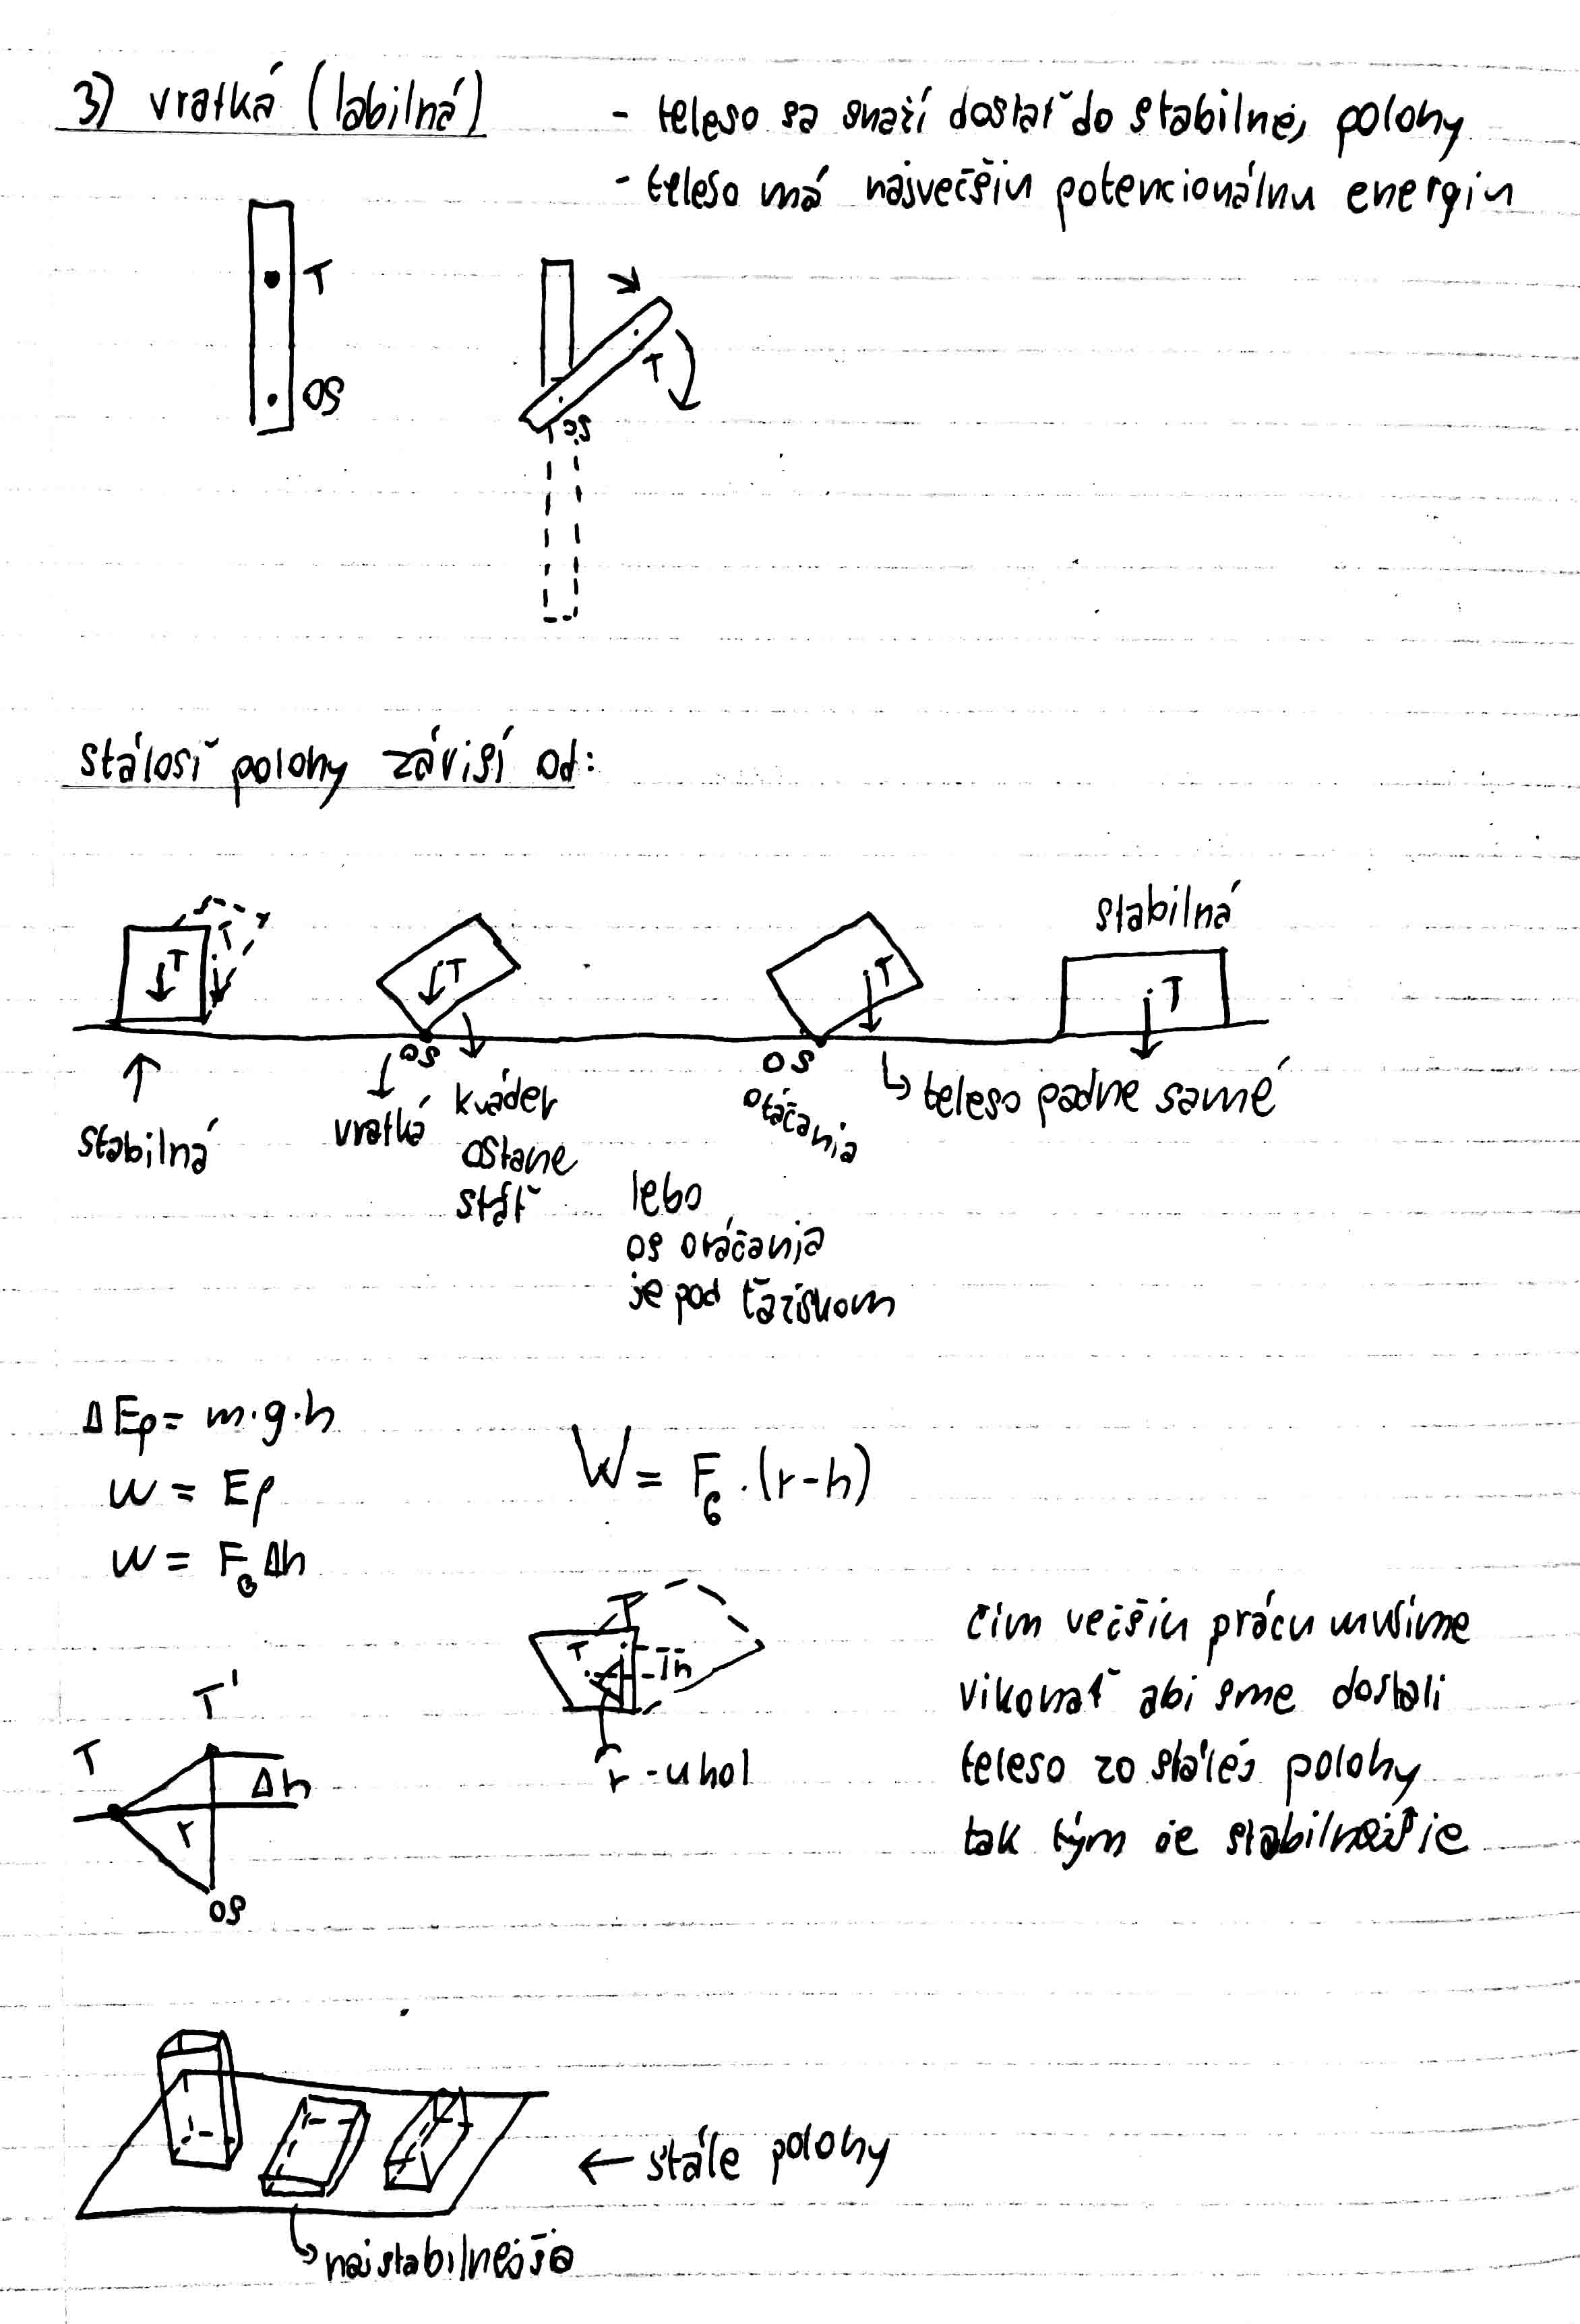 3) vratká (labilná)
- teleso sa snaží dostať do stabilnej polohy
- teleso má največšiu potencionálnu energiu
T
OS
T
OS
stálosť polohy závisí od:
stabilná
T
T
T
T
T
OS
OS
stabilná
vratká
kváder
ostane
stáť
otáčania
teleso padne samé
lebo
os otáčania
je pod ťažiskom
ΔEp = m·g·h
W = Ep
W = FG Δh
W = FG·(r-h)
T
T
h
r - uhol
T'
T
Δh
r
OS
čim večšiu prácu musíme
vikonať abi sme dostali
teleso zo stálej polohy
tak tým je stabilnejšie
stále polohy
najstabilnejšia